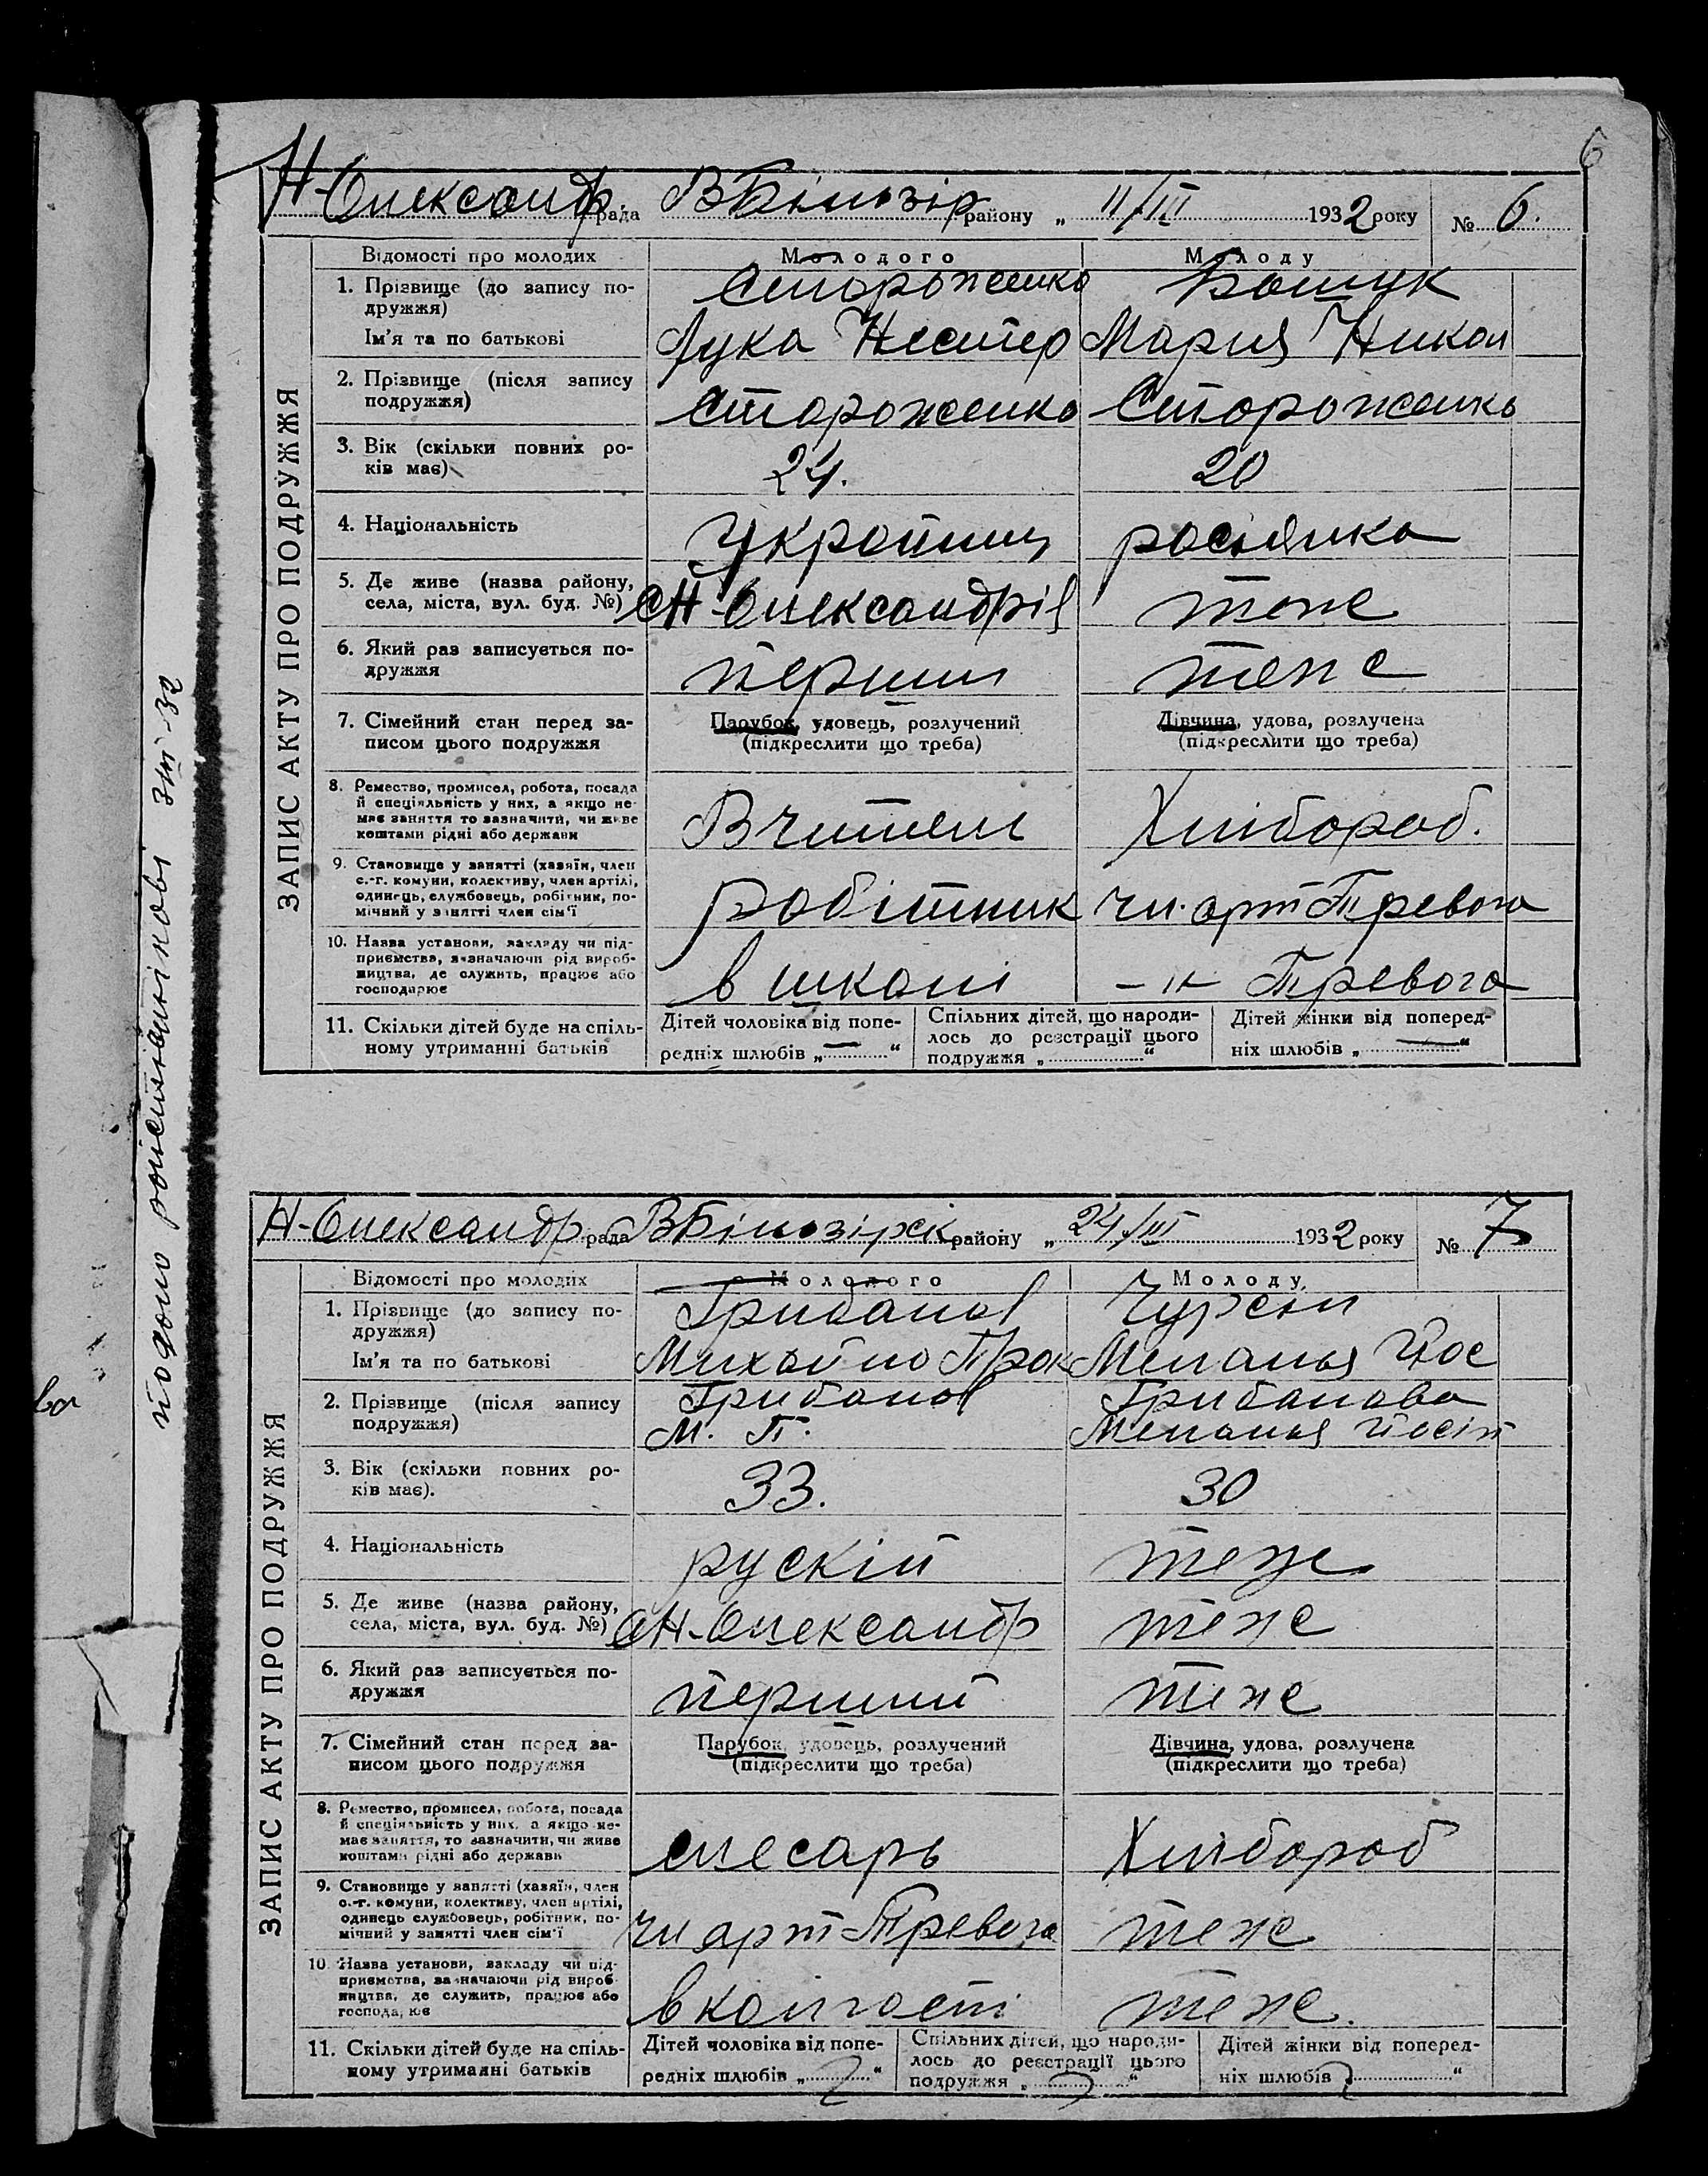 6
Н-Олександр. рада В Білозір району „ 11/III 1932 року № 6.
Відомості про молодих Молодого Молоду
ЗАПИС АКТУ ПРО ПОДРУЖЖЯ
1. Прізвище (до запису по-
дружжя) Стороженко
Ім'я та по батькові Лука Нестер Мария Никол
2. Прізвище (після запису
подружжя) Стороженко Стороженко
3. Вік (скільки повних ро-
ків має) 24. 20
4. Національність Українец росіянка
5. Де живе (назва району,
села, міста, вул. буд. №) с Н-Олександрів теж
6. Який раз записується по-
дружжя перший теж
7. Сімейний стан перед за- Парубок, удовець, розлучений Дівчина, удова, розлучена
писом цього подружжя (підкреслити що треба) (підкреслити що треба)
8. Ремество, промисел, робота, посада
й спеціяльність у них, а якщо не-
має заняття то зазначити, чи живе Вчитель Хлібороб.
коштами рідні або держави
9. Становище у занятті (хазяїн, член
с.-г. комуни, колективу, член артілі,
одинець, службовець, робітник, по- робітник чл. арт Тревога
мічний у занятті член сім'ї
10. Назва установи, закладу чи під-
приємства, зазначаючи рід вироб-
ництва, де служить, працює або в школі -//- Тревога
господарює
11. Скільки дітей буде на спіль- Дітей чоловіка від попе- Спільних дітей, що народи- Дітей жінки від поперед-
ному утриманні батьків редніх шлюбів „ — “ лось до реєстрації цього ніх шлюбів „ — “
подружжя „ “
Н-Олександр рада В Білозірск району „ 24/III 1932 року № 7
Відомості про молодих Молодого Молоду
ЗАПИС АКТУ ПРО ПОДРУЖЖЯ
1. Прізвище (до запису по- Грибанов
дружжя)
Ім'я та по батькові Михайло Прок Меланья Йос
2. Прізвище (після запису Грибанов Грибанова
подружжя) М. П. Меланья Йосіп
3. Вік (скільки повних ро-
ків має). 33. 30
4. Національність рускій теж
5. Де живе (назва району,
села, міста, вул. буд. №) с Н-Олександр теж
6. Який раз записується по-
дружжя перший теж
7. Сімейний стан перед за- Парубок, удовець, розлучений Дівчина, удова, розлучена
писом цього подружжя (підкреслити що треба) (підкреслити що треба)
8. Ремество, промисел, робота, посада
й спеціяльність у них, а якщо не-
має заняття, то зазначити, чи живе слесарь Хлібороб
коштами рідні або держави
9. Становище у занятті (хазяїн, член
с.-г. комуни, колективу, член артілі,
одинець службовець, робітник, по- чл арт Тревога теж
мічний у занятті член сім'ї
10 Назва установи, закладу чи під-
приємства, зазначаючи рід вироб-
ництва, де служить, працює або в колгоспі теж.
господарює
11. Скільки дітей буде на спіль- Дітей чоловіка від попе- Спільних дітей, що народи- Дітей жінки від поперед-
ному утриманні батьків редніх шлюбів „ “ лось до реєстрації цього ніх шлюбів “
подружжя „ “